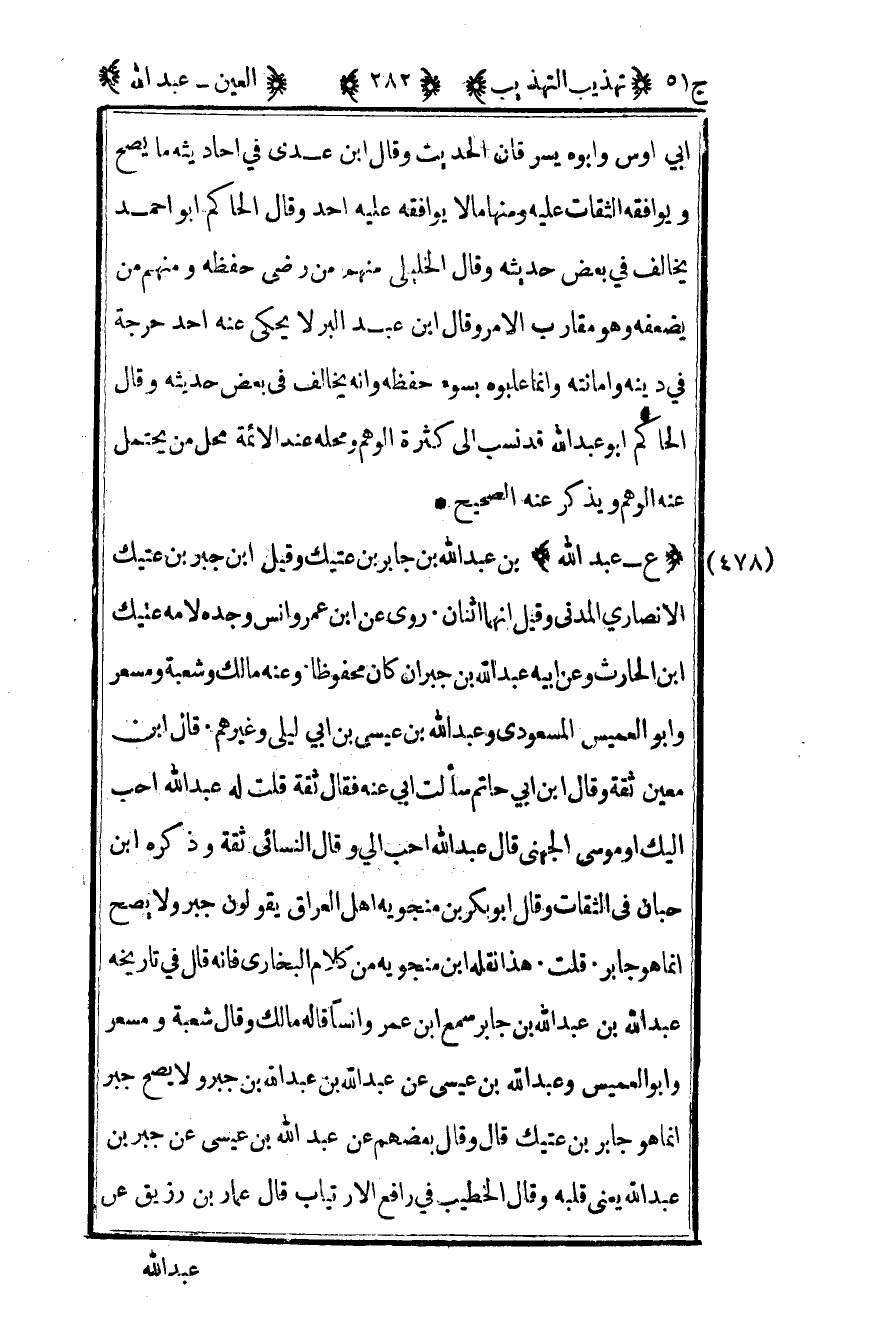 ج٥١ ﴿تهذيب التهذيب﴾ ﴿٢٨٢﴾ ﴿العين - عبد الله﴾
ابي اوس وابوه يسرقان الحديث وقال ابن عدى في احاديثه ما يصح
ويوافقه الثقات عليه ومنها مالا يوافقه عليه احد وقال الحاكم ابو احمد
يخالف في بعض حديثه وقال الخليلى منهم من رضى حفظه ومنهم من
يضعفه وهو مقارب الامر وقال ابن عبد البر لا يحكى عنه احد حرجة
في دينه وامانته وانما عابوه بسوء حفظه وانه يخالف فى بعض حديثه وقال
الحاكم ابو عبدالله قد نسب الى كثرة الوهم ومحله عند الائمة محل من يحتمل
عنه الوهم ويذكر عنه الصحيح •
(٤٧٨) ﴿ع - عبد الله﴾ بن عبدالله بن جابر بن عتيك وقيل ابن جبر بن عتيك
الانصاري المدنى وقيل انهما اثنان · روى عن ابن عمر وانس وجده لامه عتيك
ابن الحارث وعن ابيه عبدالله بن جبر ان كان محفوظا · وعنه مالك وشعبة ومسعر
وابو العميس المسعودى وعبدالله بن عيسى بن ابي ليلى وغيرهم · قال ابن
معين ثقة وقال ابن ابي حاتم سألت ابي عنه فقال ثقة قلت له عبدالله احب
اليك او موسى الجهنى قال عبدالله احب الي وقال النسائى ثقة وذكره ابن
حبان فى الثقات وقال ابو بكر بن منجويه اهل العراق يقولون جبر ولا يصح
انما هو جابر · قلت · هذا نقله ابن منجويه من كلام البخارى فانه قال في تاريخه
عبدالله بن عبدالله بن جابر سمع ابن عمر وانساً قاله مالك وقال شعبة ومسعر
وابو العميس وعبدالله بن عيسى عن عبدالله بن عبدالله بن جبر ولا يصح جبر
انما هو جابر بن عتيك قال وقال بعضهم عن عبد الله بن عيسى عن جبر بن
عبدالله يعنى قلبه وقال الخطيب في رافع الارتياب قال عمار بن رزيق عن
عبدالله